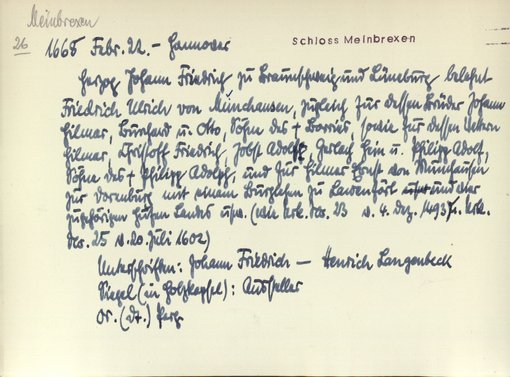 Meinbrexen
26
Schloss Meinbrexen
1668 Febr. 22. - Hannover
Herzog Johann Friedrich zu Braunschweig und Lüneburg belehnt
Friedrich Ulrich von Münchausen, zugleich für dessen Brüder Johann
Hilmar, Burchard u. Otto, Söhne des † Borries, sowie für dessen Vettern
Hilmar, Christoff Friedrich, Jobst Adolf, Gerlach Hein u. Philipp Adolf,
Söhne des † Philipp Adolph, und für Hilmar Ernst von Münchausen
zur mit einem Burglehn zu Lauenförd und der
zugehörigen Hufen Landes usw. (wie Urk. Nr. 23 v. 4. Dez. 1493 u. Urk.
Nr. 25 v. 20. Juli 1602)
Unterschriften: Johann Friedrich - Henrich Langenbeck
Siegel (in Holzkapsel): Aussteller
Or. (dt.) Perg.